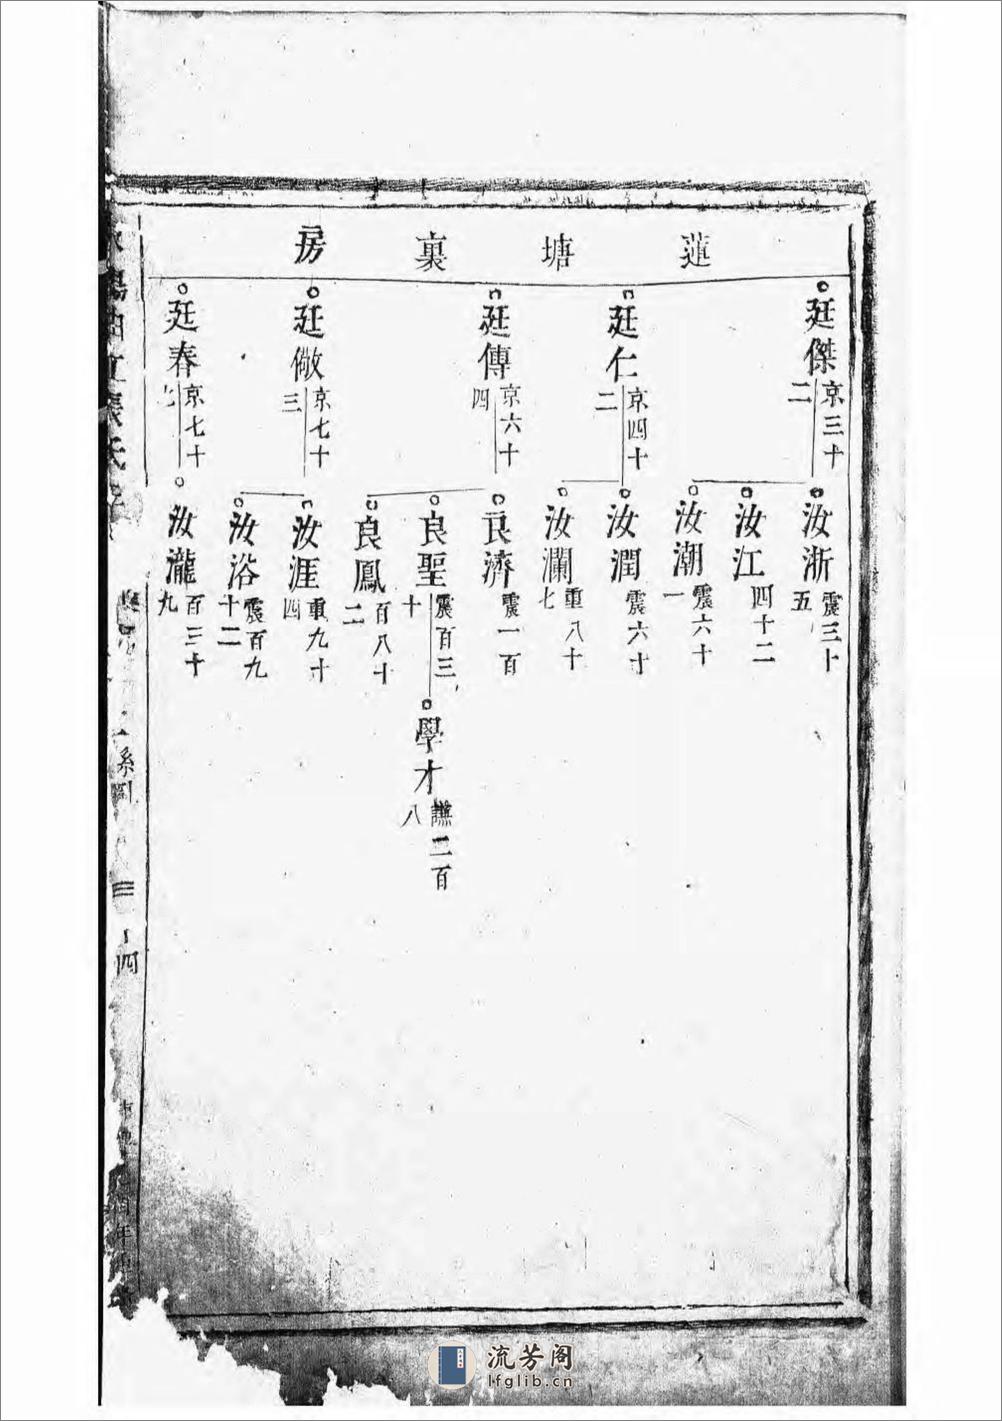 蓮塘裏房
廷傑 京三十二
廷仁 京四十二
廷傳 京六十四
廷儆 京七十三
廷春 京七十
汝浙 震三十五
汝江 四十二
汝潮 震六十一
汝潤 震六十
汝瀾 重八十七
良濟 震一百
良聖 震百三十
良鳳 百八十二
汝涯 重九十四
汝浴 震百九十二
汝瀧 百三十九
學才 謙二百八
張氏
系圖
三
四
流芳阁
lfglib.cn